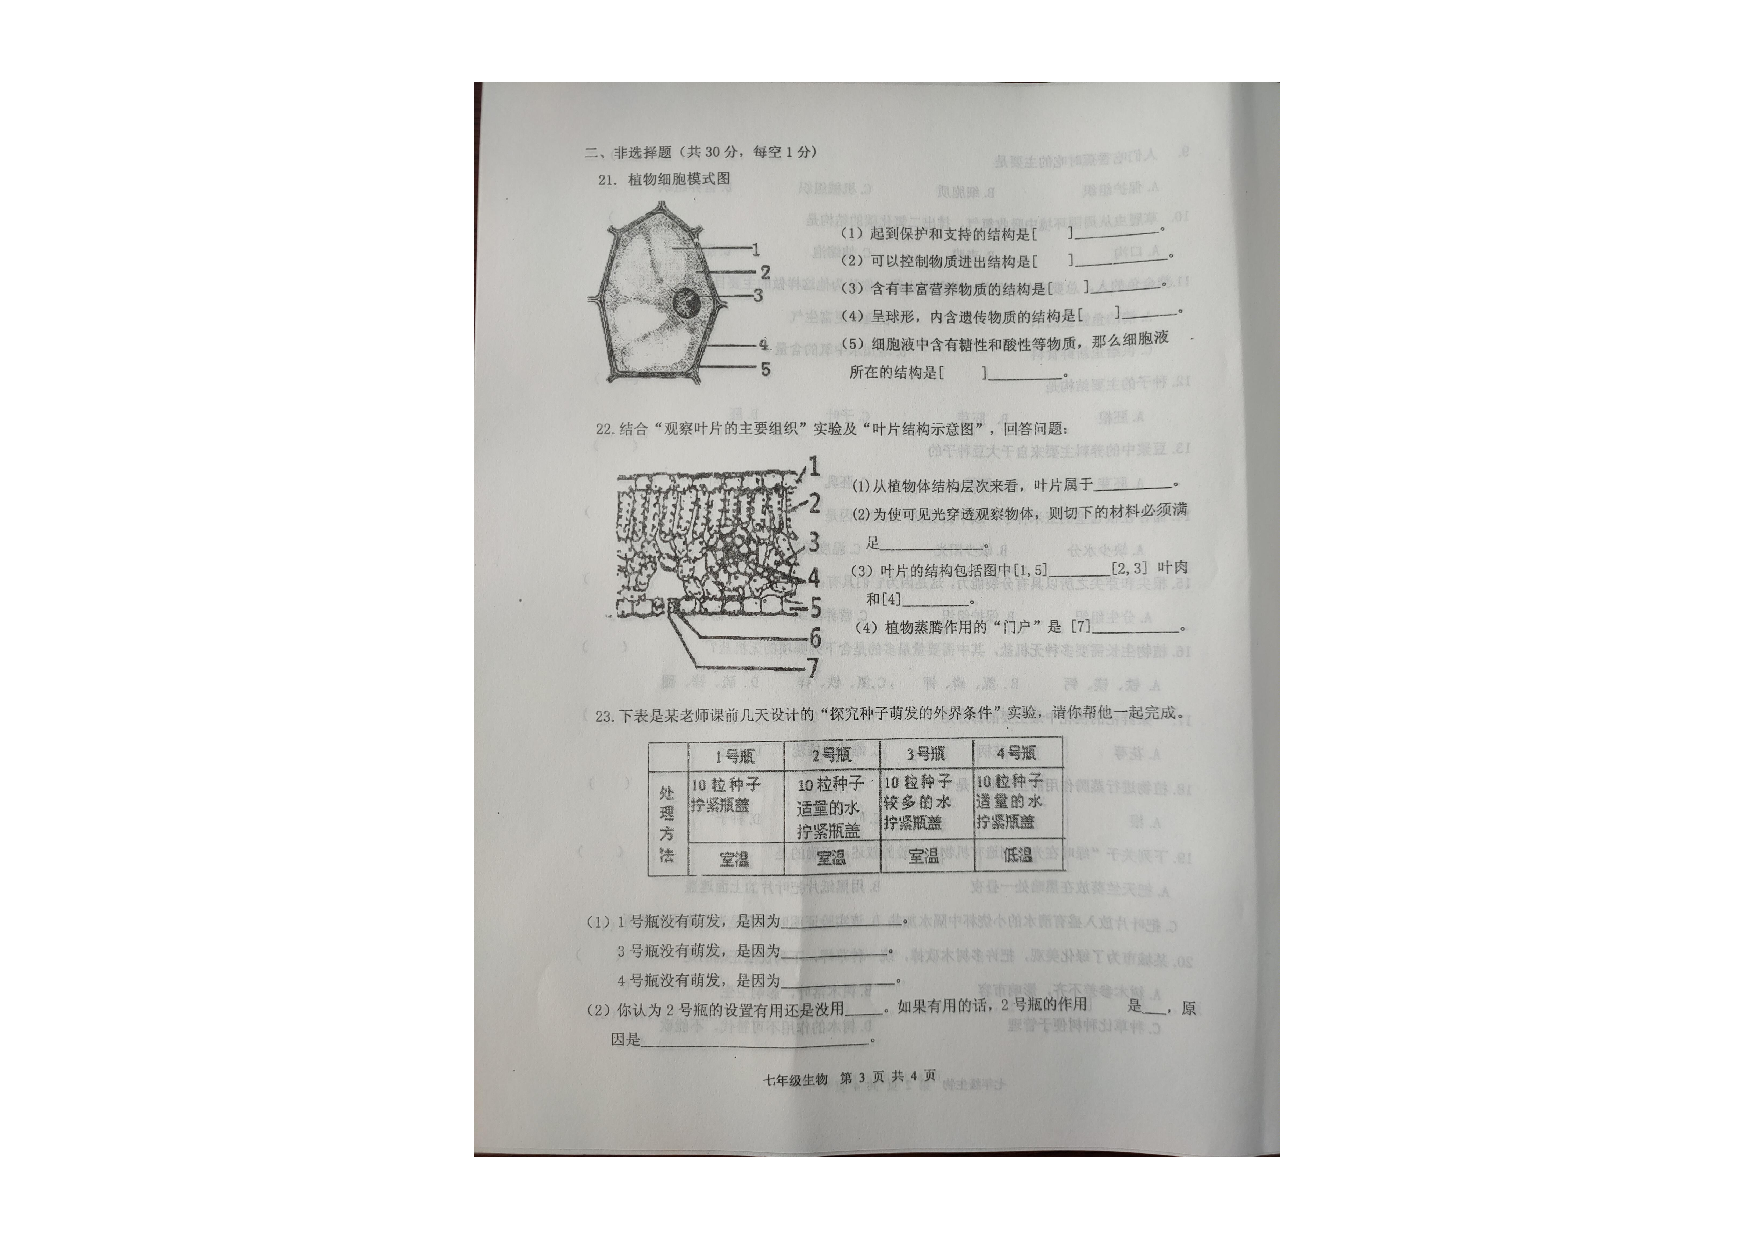 二、非选择题（共30分，每空1分）
21. 植物细胞模式图
1
2
3
4
5
（1）起到保护和支持的结构是[ ]________。
（2）可以控制物质进出结构是[ ]________。
（3）含有丰富营养物质的结构是[ ]________。
（4）呈球形，内含遗传物质的结构是[ ]______。
（5）细胞液中含有糖性和酸性等物质，那么细胞液
所在的结构是[ ]________。
22.结合“观察叶片的主要组织”实验及“叶片结构示意图”，回答问题：
1
2
3
4
5
6
7
(1)从植物体结构层次来看，叶片属于________。
(2)为使可见光穿透观察物体，则切下的材料必须满
足__________。
（3）叶片的结构包括图中[1,5]______[2,3] 叶肉
和[4]_______。
（4）植物蒸腾作用的“门户”是 [7]________。
23.下表是某老师课前几天设计的“探究种子萌发的外界条件”实验，请你帮他一起完成。
1号瓶 2号瓶 3号瓶 4号瓶
处理方法
10粒种子 拧紧瓶盖
10粒种子 适量的水 拧紧瓶盖
10粒种子 较多的水 拧紧瓶盖
10粒种子 适量的水 拧紧瓶盖
室温 室温 室温 低温
（1）1号瓶没有萌发，是因为____________。
3号瓶没有萌发，是因为___________。
4号瓶没有萌发，是因为___________。
（2）你认为2号瓶的设置有用还是没用____。如果有用的话，2号瓶的作用 是___，原
因是______________________。
七年级生物 第 3 页 共 4 页